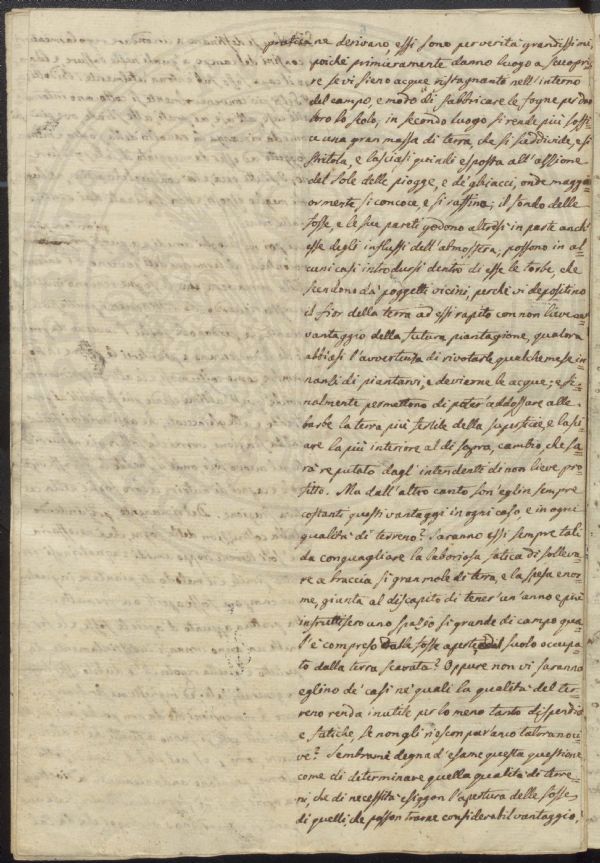 pratica ne derivano, essi sono per verità grandissimi,
poichè primieramente danno luogo a scuopri=
re se vi sieno acque ristagnanti nell'interno
del campo, e modo di fabbricare le fogne per dar
loro lo scolo, in secondo luogo si rende più soffi=
ce una gran massa di terra, che si suddivide, e si
stritola, e lasciasi quindi esposta all'azzione
del Sole delle piogge, e de' ghiacci, onde maggi=
ormente si concoce, e si raffina; il fondo delle
fosse, e le sue pareti godono altresì in parte anch'
esse degli influssi dell'atmosfera, possono in al=
cuni casi introdursi dentro di esse le torbe, che
scendono da' poggetti vicini, perchè vi depositino
il fior della terra ad essi rapito con non lieve
vantaggio della futura piantagione, qualora
abbiasi l'avvertenza di rivotarle qualche mese in=
nanzi di piantarvi, e devierne le acque; e fi=
nalmente permettono di poter addossare alle
barbe la terra più fertile della superficie, e lasci=
are la più interiore al di sopra, cambio, che sa=
rà reputato dagl'intendenti di non lieve pro=
fitto. Ma dall'altro canto son'eglin sempre
costanti questi vantaggi in ogni caso e in ogni
qualità di terreno? Saranno essi sempre tali
da conguagliare la laboriosa fatica di solleva=
re a braccia sì gran mole di terra, e la spesa enor=
me, giunta al discapito di tener'un'anno e più
infruttifero uno spazio sì grande di campo qua=
l'è compreso dalle fosse aperte e dal suolo occupa=
to dalla terra scavata? Oppure non vi saranno
eglino de' casi ne' quali la qualità del ter=
reno renda inutile per lo meno tanto dispendio
e fatiche, se non gli riescon per anco talora noci=
ve? Sembrami degna d'esame questa questione
come di determinare quella qualità di terre=
ni, che di necessità esiggon l'apertura delle fosse,
di quelli, che posson trarne considerabil vantaggio,